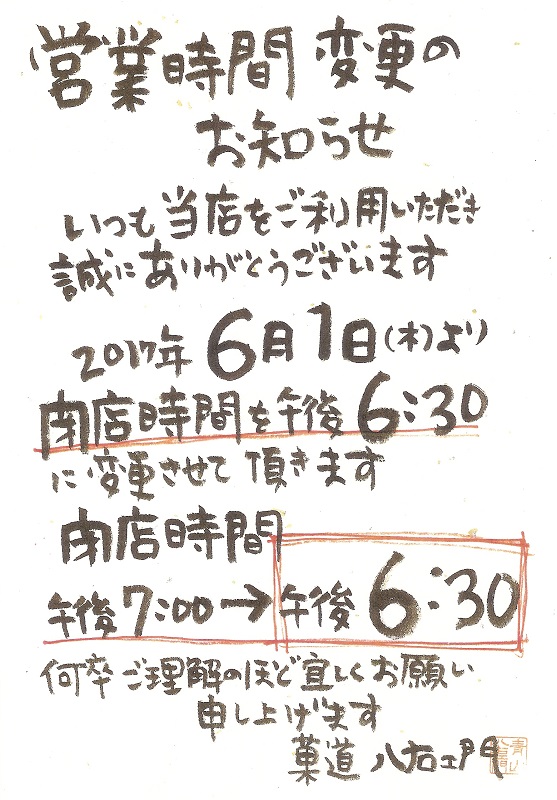 営業時間変更の
お知らせ
いつも当店をご利用いただき
誠にありがとうございます
2017年6月1日(木)より
閉店時間を午後6:30
に変更させて頂きます
閉店時間
午後7:00→午後6:30
何卒ご理解のほど宜しくお願い
申し上げます
菓道 八右エ門